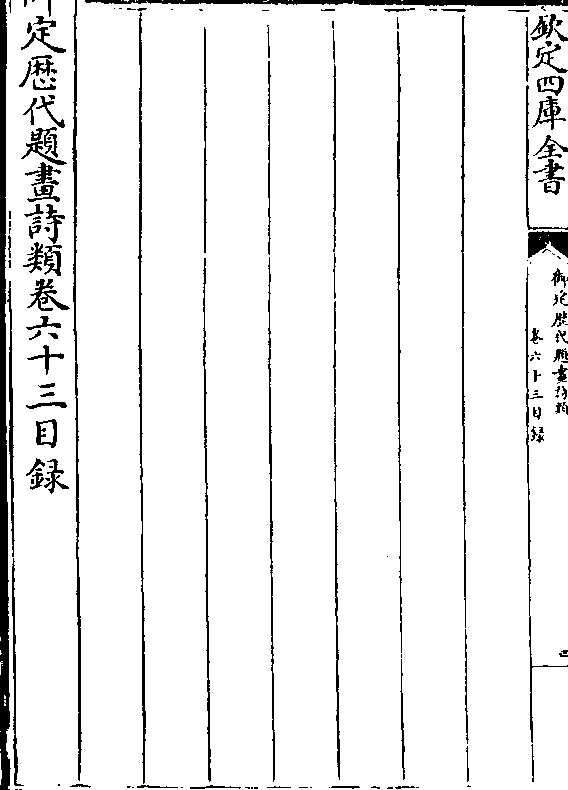 欽定四庫全書
御定歴代題畫詩類
卷六十三目録
御定歴代題畫詩類卷六十三目録